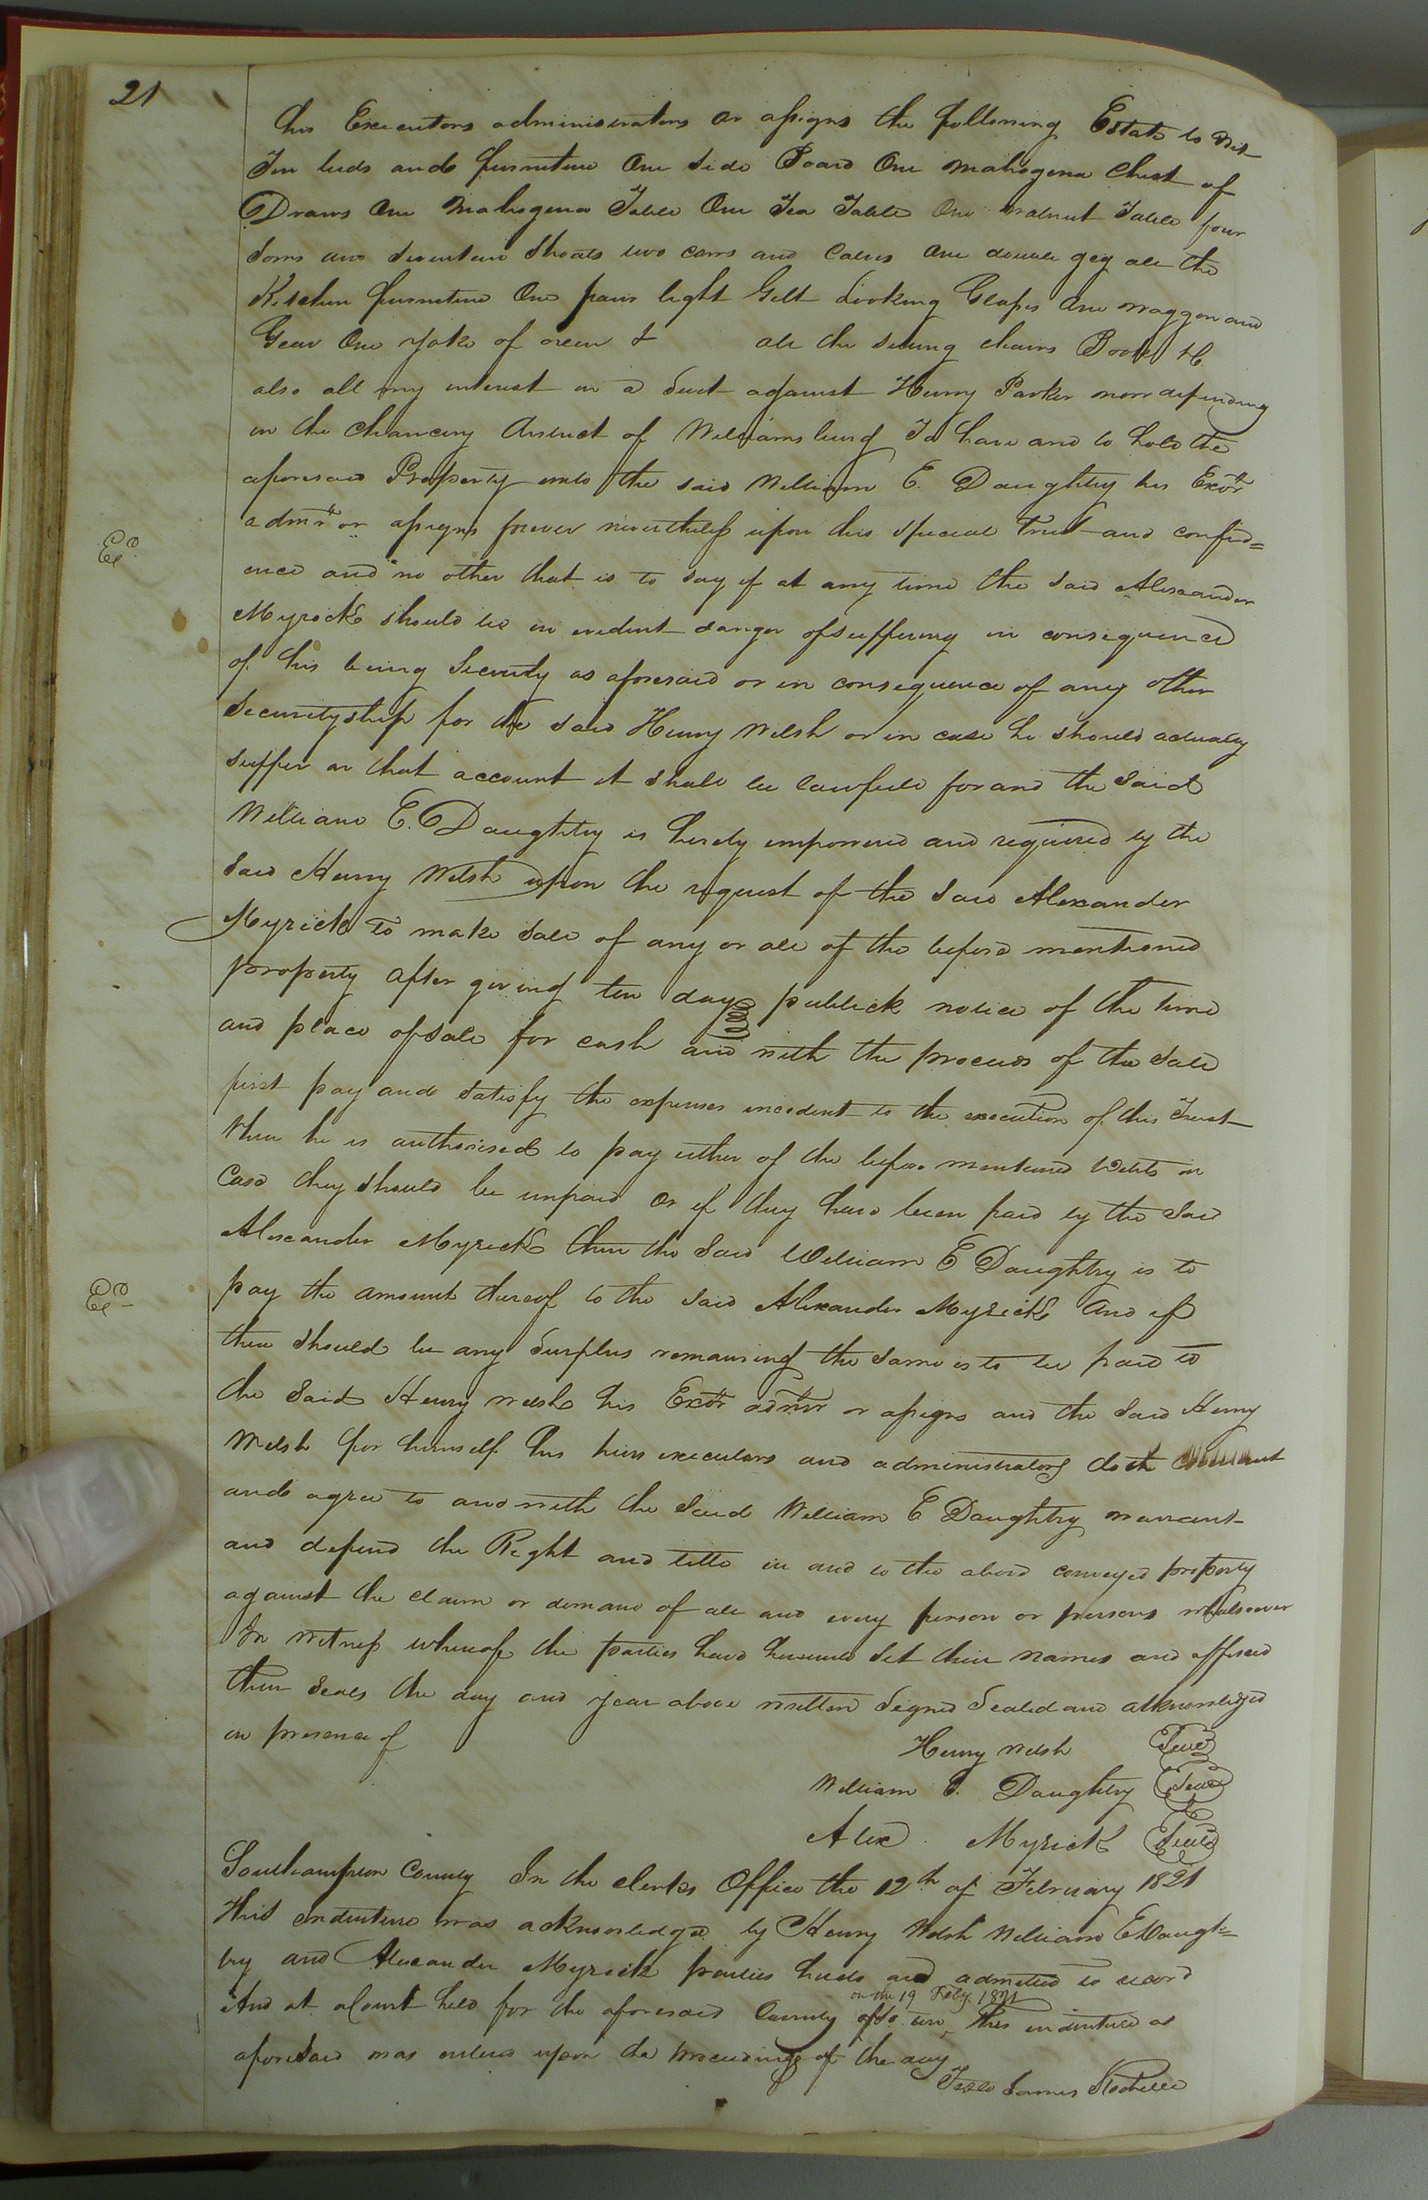 21
his Executors administrators or assigns the following Estate to Wit
Ten beds and furniture One Side Board One Mahogena Chest of
Draws One Mahogena Table One Tea Table One walnut Table four
Sows and Seventeen Shoats two cows and Calves One double gig all the
Kitchen furniture One pair light Gilt Looking Glasses One waggon and
Gear One yoke of oxen & all the setting chairs Books &c
also all my interest in a Suit against Henry Parker now depending
in the Chancery district of Williamsburg To have and to hold the
aforesaid Property unto the said William E. Daughtry his Exors
admrs or assigns forever nevertheless upon this special Trust and confid=
ence and no other that is to say if at any time the said Alexander
Myrick should be in evident danger of suffering in consequence
of his being Security as aforesaid or in consequence of any other
Securityship for the said Henry Welsh or in case he should actually
suffer on that account it shall be lawfull for and the Said
William E. Daughtry is hereby empowered and required by the
Said Henry Welsh upon the request of the Said Alexander
Myrick to make Sale of any or all of the before mentioned
property after giving ten days publick notice of the time
and place of Sale for cash and with the proceeds of the Sale
first pay and Satisfy the expenses incedent to the execution of this Trust
then he is authorised to pay either of the before mentioned Debts in
Case they should be unpaid Or if they have been paid by the Said
Alexander Myrick then the Said William E Daughtry is to
pay the amount thereof to the Said Alexander Myrick And if
there Should be any Surplus remaining the Same is to be paid to
the Said Henry Welsh his Exors admrs or assigns and the Said Henry
Welsh for himself his heirs executors and administrators doth covenant
and agree to and with the Said William E Daughtry warrant
and defend the Right and title in and to the above conveyed property
against the claim or demand of all and every person or persons whatsoever
In Witness whereof the parties have hereunto Set their names and affixed
their Seals the day and year above written Signed Sealed and acknowledged
in presence of
Henry Welsh Seal
William E. Daughtry Seal
Alex. Myrick Seal
Southampton County In the clerks Office the 12th of February 1821
This indenture was acknowledged by Henry Welsh William E Daugh=
try and Alexander Myrick parties hereto and admitted to record
on the 19 Feby 1821
And at a Court held for the aforesaid County This indenture as
aforesaid was entered upon the proceedings of the day
Teste James Rochelle